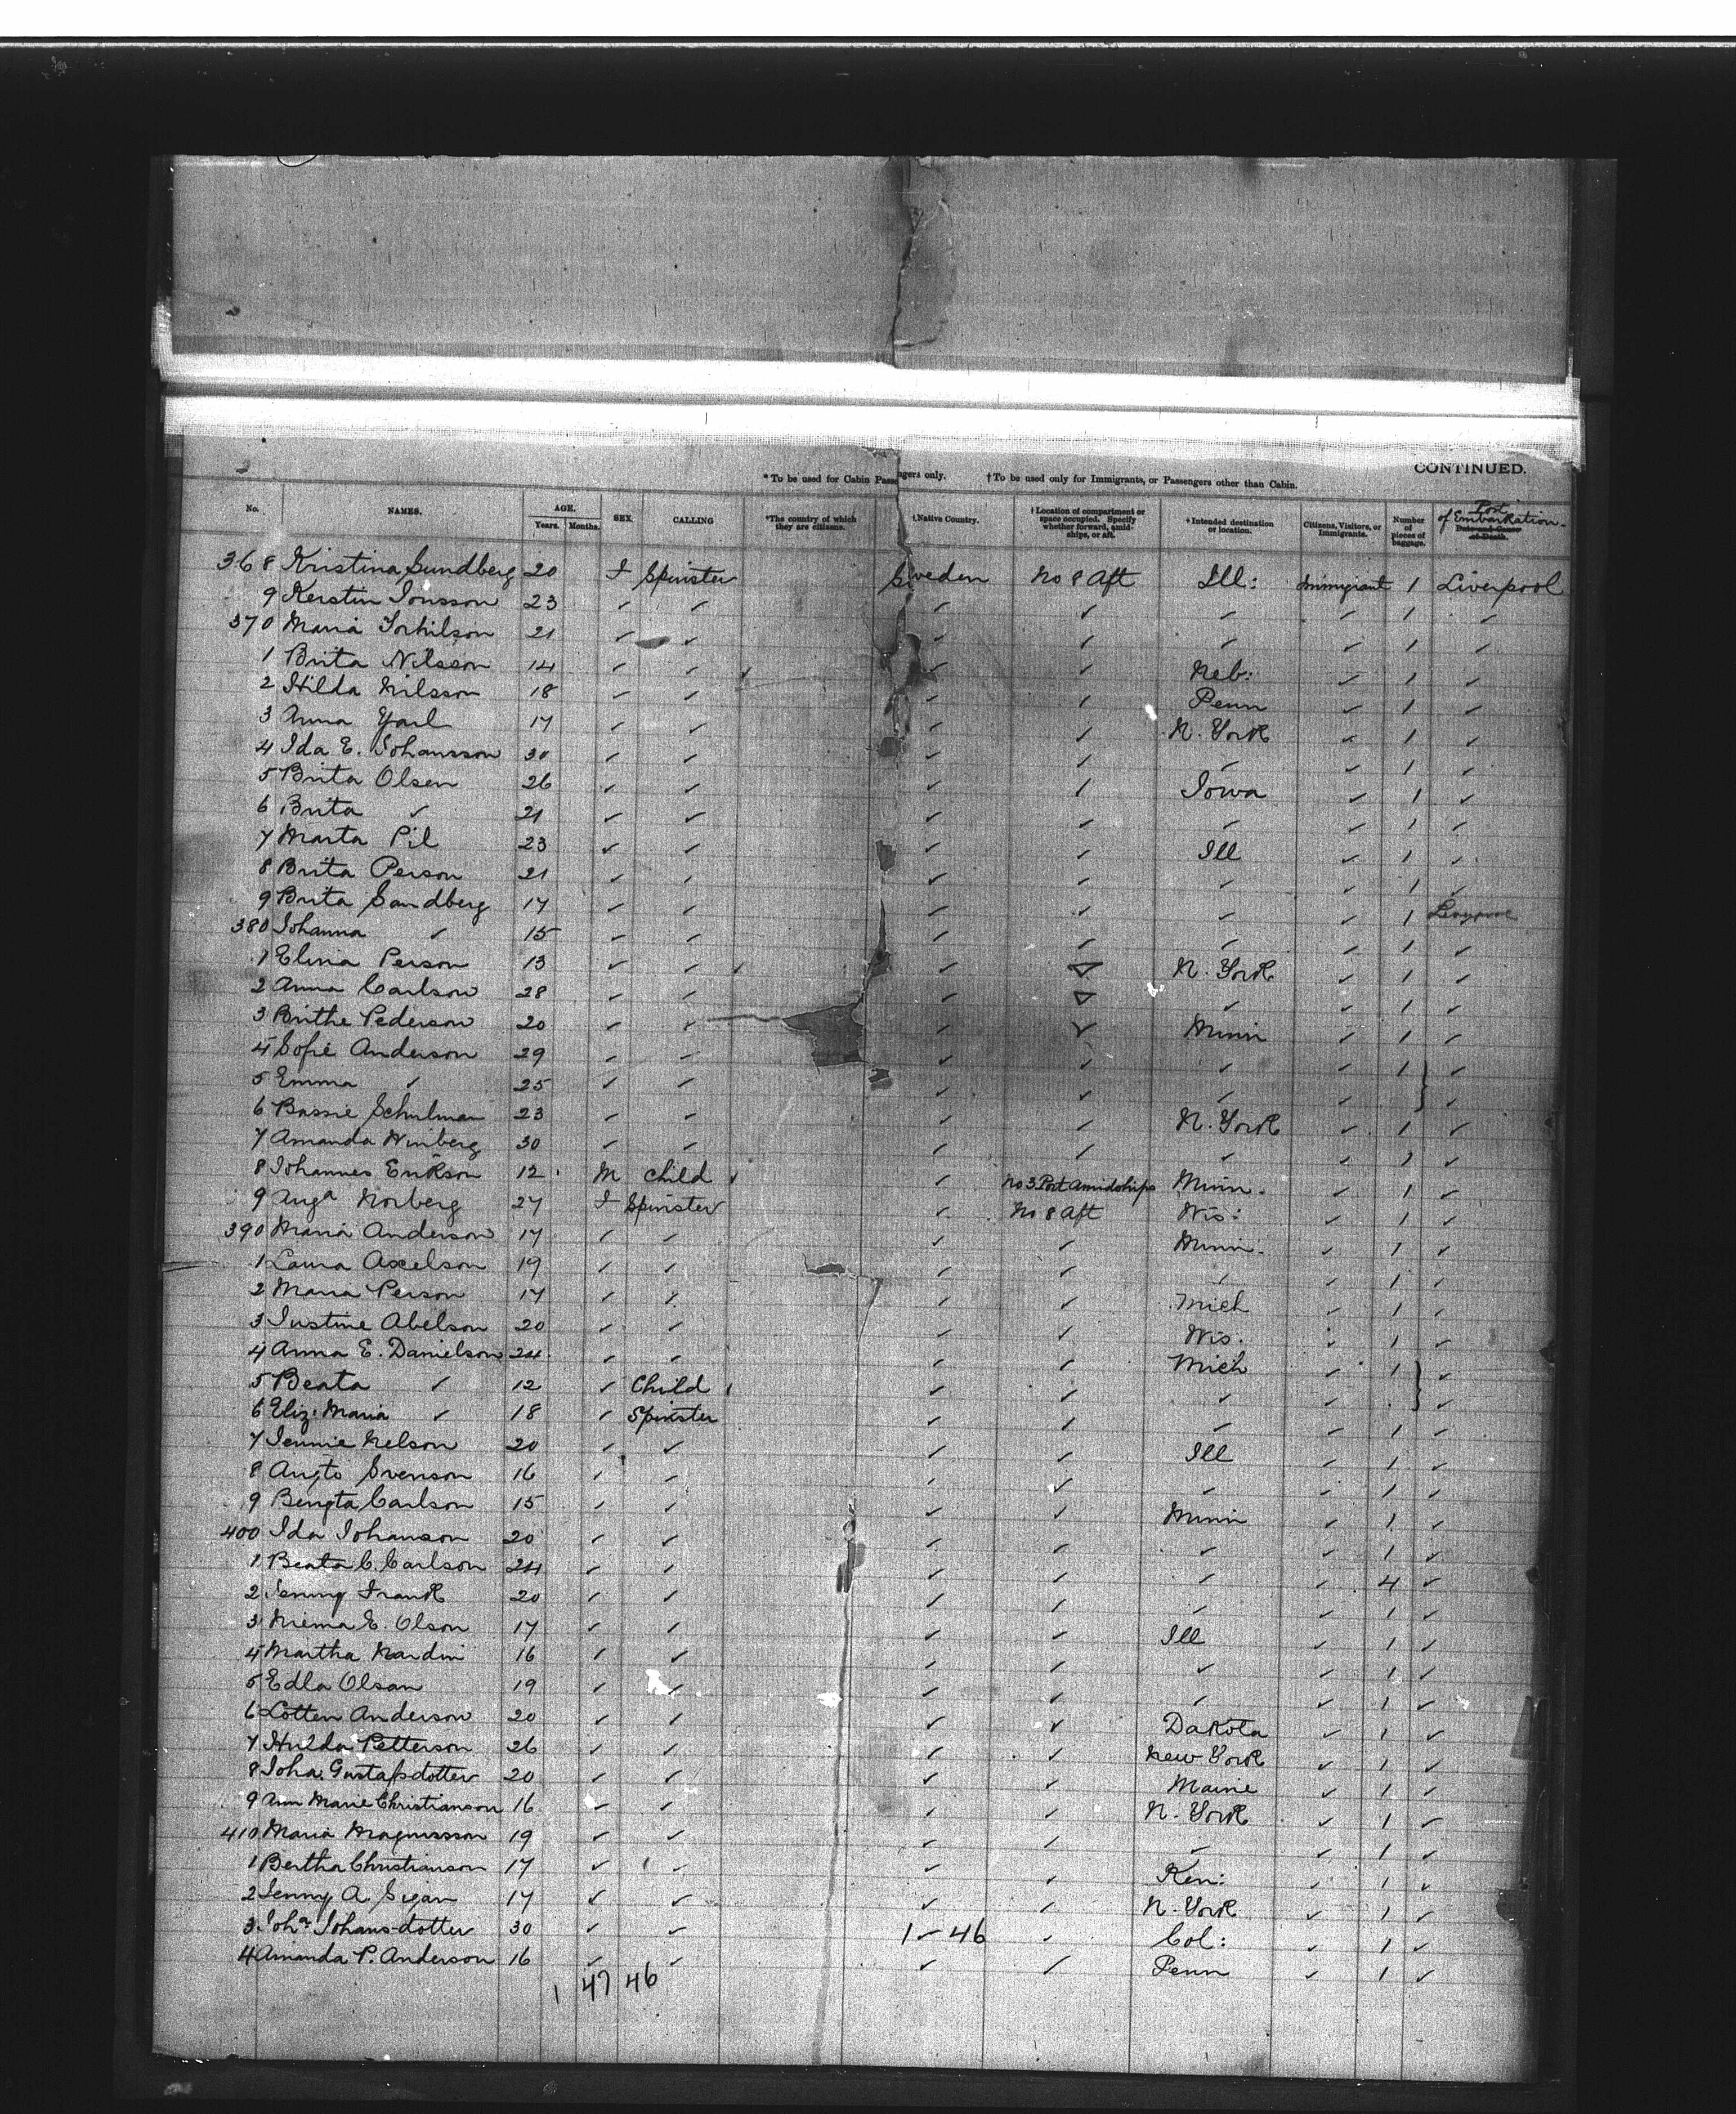 CONTINUED.
* To be used for Cabin Passengers only. † To be used only for Immigrants, or Passengers other than Cabin.
No. NAMES. AGE. Years. Months. SEX. CALLING *The country of which they are citizens. †Native Country. †Location of compartment or space occupied. Specify whether forward, amidships, or aft. †Intended destination or location. Citizens, Visitors, or Immigrants. Number of pieces of baggage. Port of Embarkation. Date and Cause of Death.
368 Kristina Sundberg 20 F Spinster Sweden No 8 Aft Ill: Immigrant 1 Liverpool
9 Kerstin Jonsson 23 ✓ ✓ ✓ ✓ ✓ ✓ 1 ✓
370 Maria Torkilson 21 ✓ ✓ ✓ ✓ ✓ ✓ 1 ✓
1 Brita Nilsson 14 ✓ ✓ ✓ ✓ Neb: ✓ 1 ✓
2 Hilda Nilsson 18 ✓ ✓ ✓ ✓ Penn ✓ 1 ✓
3 Anna 17 ✓ ✓ ✓ ✓ N. York ✓ 1 ✓
4 Ida E. Johansson 30 ✓ ✓ ✓ ✓ ✓ ✓ 1 ✓
5 Brita Olsen 26 ✓ ✓ ✓ ✓ Iowa ✓ 1 ✓
6 Brita ✓ 21 ✓ ✓ ✓ ✓ ✓ ✓ 1 ✓
7 Marta Pil 23 ✓ ✓ ✓ ✓ Ill ✓ 1 ✓
8 Brita Person 21 ✓ ✓ ✓ ✓ ✓ ✓ 1 ✓
9 Brita Sandberg 17 ✓ ✓ ✓ ✓ ✓ ✓ 1 Liverpool
380 Johanna ✓ 15 ✓ ✓ ✓ ✓ ✓ ✓ 1 ✓
1 Elina Person 13 ✓ ✓ ✓ ✓ N. York ✓ 1 ✓
2 Anna Carlson 28 ✓ ✓ ✓ ✓ ✓ ✓ 1 ✓
3 Brithe Pederson 20 ✓ ✓ ✓ ✓ Minn ✓ 1 ✓
4 Sofie Anderson 29 ✓ ✓ ✓ ✓ ✓ ✓ 1 ✓
5 Emma ✓ 25 ✓ ✓ ✓ ✓ ✓ ✓ ✓
6 Bassie Schulman 23 ✓ ✓ ✓ ✓ N. York ✓ 1 ✓
7 Amanda Winberg 30 ✓ ✓ ✓ ✓ ✓ ✓ 1 ✓
8 Johannes Erikson 12 M Child ✓ No 3 Port Amidships Minn. ✓ 1 ✓
9 Auga Norberg 27 F Spinster ✓ No 8 Aft Wis: ✓ 1 ✓
390 Maria Anderson 17 ✓ ✓ ✓ ✓ Minn. ✓ 1 ✓
1 Laura Axelson 19 ✓ ✓ ✓ ✓ ✓ ✓ 1 ✓
2 Maria Person 17 ✓ ✓ ✓ ✓ Mich ✓ 1 ✓
3 Justine Abelson 20 ✓ ✓ ✓ ✓ Wis. ✓ 1 ✓
4 Anna E. Danielson 24 ✓ ✓ ✓ ✓ Mich ✓ 1 ✓
5 Beata ✓ 12 ✓ Child ✓ ✓ ✓ ✓ ✓
6 Eliz: Maria ✓ 18 ✓ Spinster ✓ ✓ ✓ ✓ 1 ✓
7 Jennie Nelson 20 ✓ ✓ ✓ ✓ Ill ✓ 1 ✓
8 Augta Svenson 16 ✓ ✓ ✓ ✓ ✓ ✓ 1 ✓
9 Bengta Carlson 15 ✓ ✓ ✓ ✓ Minn ✓ 1 ✓
400 Ida Johanson 20 ✓ ✓ ✓ ✓ ✓ ✓ 1 ✓
1 Beata C. Carlson 24 ✓ ✓ ✓ ✓ ✓ ✓ 4 ✓
2 Jenny Frank 20 ✓ ✓ ✓ ✓ ✓ ✓ 1 ✓
3 E. Olson 17 ✓ ✓ ✓ ✓ Ill ✓ 1 ✓
4 Martha Nardin 16 ✓ ✓ ✓ ✓ ✓ ✓ 1 ✓
5 Edla Olsan 19 ✓ ✓ ✓ ✓ ✓ ✓ 1 ✓
6 Lotten Anderson 20 ✓ ✓ ✓ ✓ Dakota ✓ 1 ✓
7 Hulda Petterson 26 ✓ ✓ ✓ ✓ New York ✓ 1 ✓
8 Joha. Gustafsdotter 20 ✓ ✓ ✓ ✓ Maine ✓ 1 ✓
9 Ann Marie Christianson 16 ✓ ✓ ✓ ✓ N. York ✓ 1 ✓
410 Maria Magnusson 19 ✓ ✓ ✓ ✓ ✓ ✓ 1 ✓
1 Bertha Christianson 17 ✓ ✓ ✓ ✓ Ken: ✓ 1 ✓
2 Jenny A. 17 ✓ ✓ ✓ ✓ N. York ✓ 1 ✓
3 Joha Johans-dotter 30 ✓ ✓ 1 - 46 ✓ Col: ✓ 1 ✓
4 Amanda P. Anderson 16 ✓ ✓ ✓ ✓ Penn ✓ 1 ✓
1 47 46